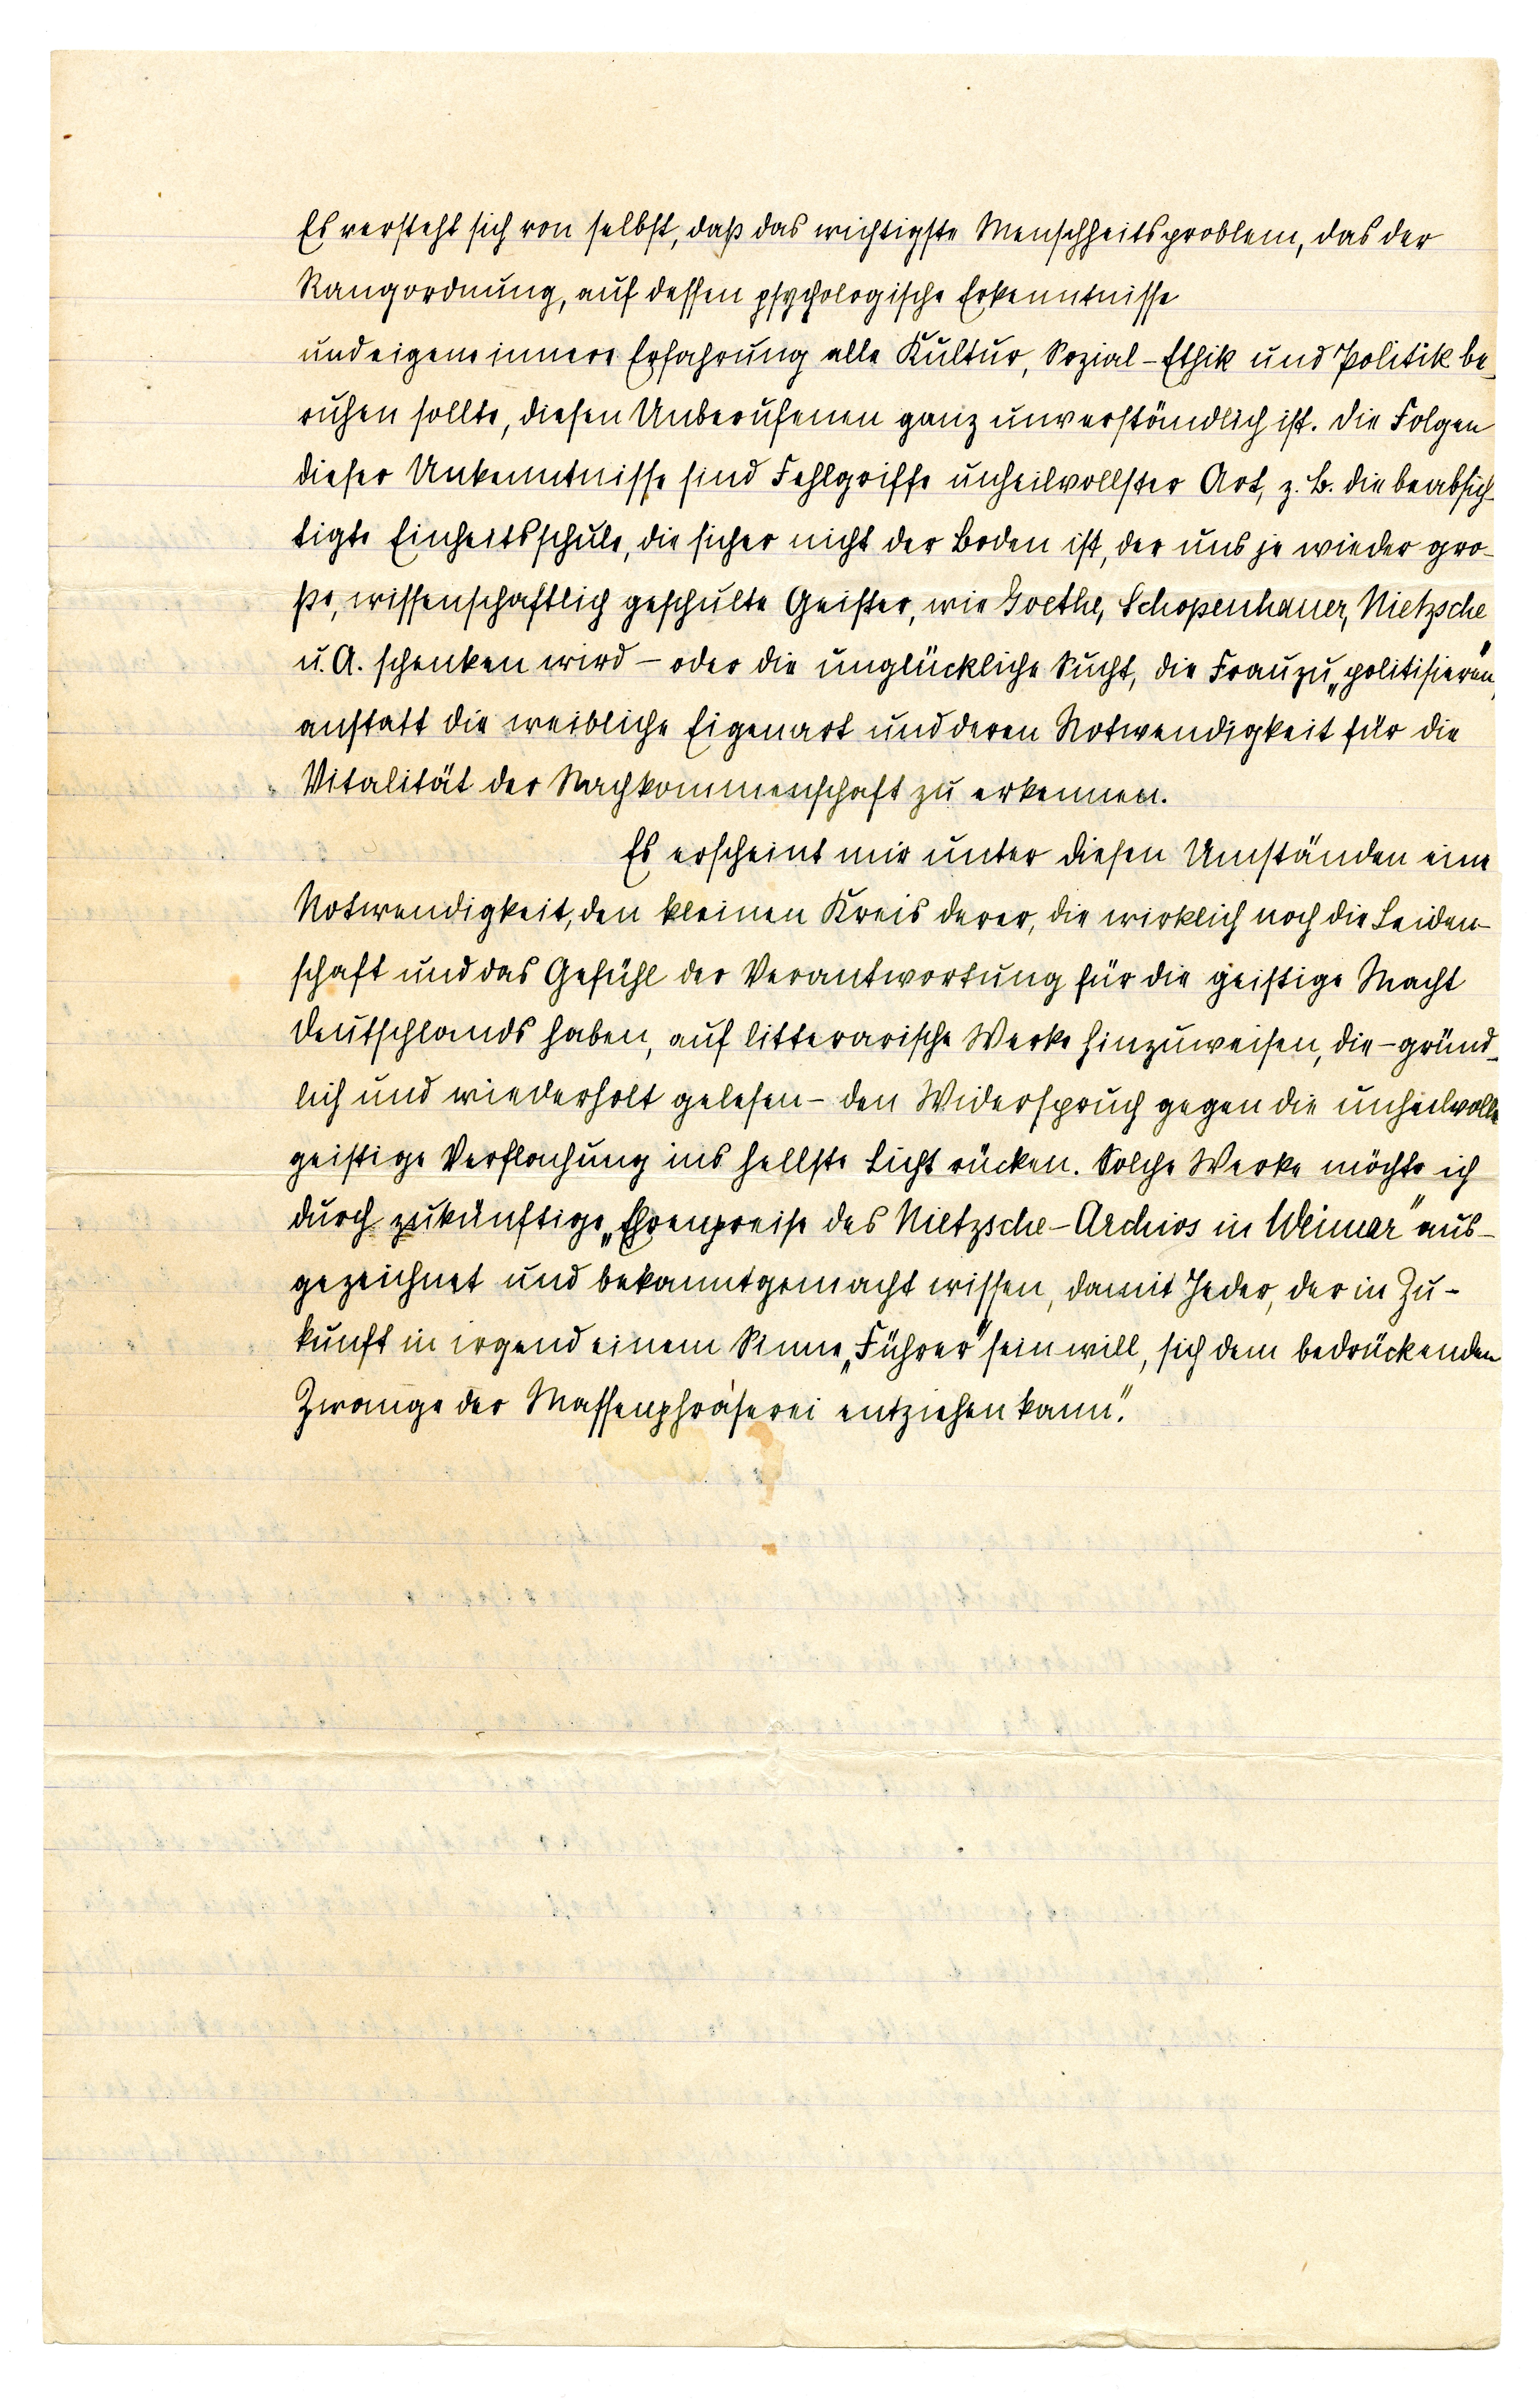 Es versteht sich von selbst, daß das wichtigste Menschheitsproblem, das der
Rangordnung, auf dessen psychologische Erkenntnisse
und eigene innere Erfahrung alle Kultur, Sozial-Ethik und Politik be-
ruhen sollte, diesen Unberufenen ganz unverständlich ist. Die Folgen
dieser Unkenntnisse sind Fehlgriffe unheilvollster Art, z. B. die beabsich-
tigte Einheitsschule, die sicher nicht der Boden ist, der uns je wieder gro-
ße, wissenschaftlich geschulte Geister, wie Goethe, Schopenhauer, Nietzsche
u. A. schenken wird – oder die unglückliche Sucht, die Frau zu „politisieren“,
anstatt die weibliche Eigenart und deren Notwendigkeit für die
Vitalität der Nachkommenschaft zu erkennen.
Es erscheint mir unter diesen Umständen eine
Notwendigkeit, den kleinen Kreis derer, die wirklich noch die Leiden-
schaft und das Gefühl der Verantwortung für die geistige Macht
Deutschlands haben, auf litterarische Werke hinzuweisen, die – gründ-
lich und wiederholt gelesen – den Widerspruch gegen die unheilvolle
geistige Verflachung ins hellste Licht rücken. Solche Werke möchte ich
durch zukünftige „Ehrenpreise des Nietzsche-Archivs in Weimar“ aus-
gezeichnet und bekanntgemacht wissen, damit Jeder, der in Zu-
kunft in irgend einem Sinne „Führer“ sein will, sich dem bedrückenden
Zwange der Massenphraserei entziehen kann.“